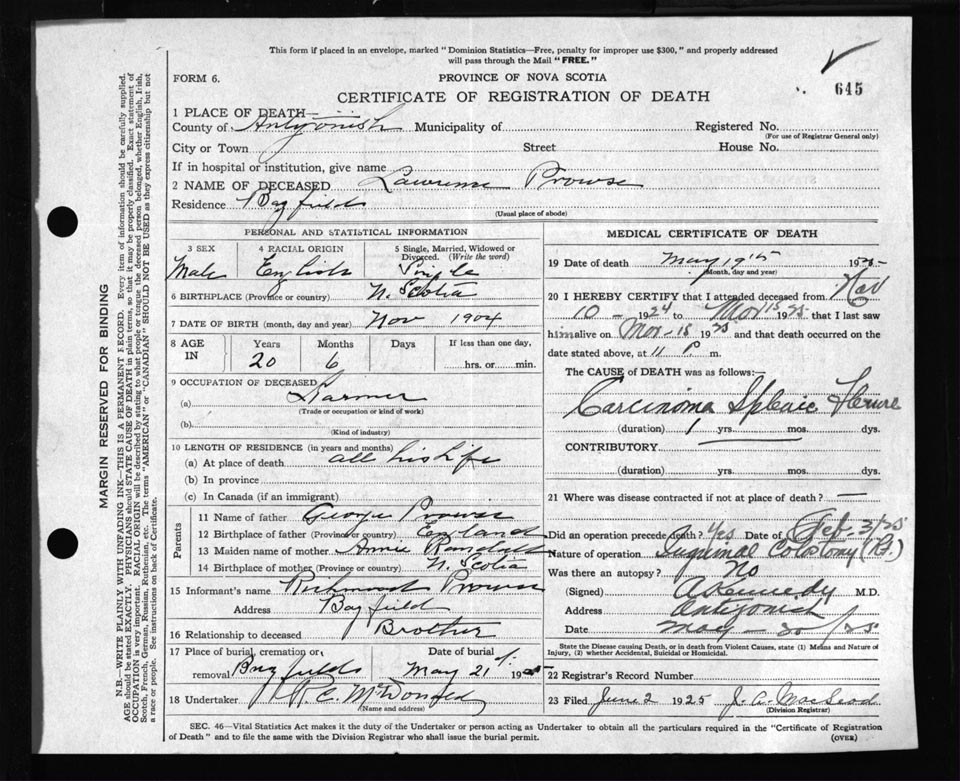 This form if placed in an envelope, marked "Dominion Statistics—Free, penalty for improper use $300," and properly addressed
will pass through the Mail "FREE."
FORM 6.
PROVINCE OF NOVA SCOTIA
645
CERTIFICATE OF REGISTRATION OF DEATH
1 PLACE OF DEATH—
County of Antigonish Municipality of Registered No.
(For use of Registrar General only)
City or Town Street House No.
If in hospital or institution, give name
2 NAME OF DECEASED Lawrence Prowse
Residence Bayfield
(Usual place of abode)
PERSONAL AND STATISTICAL INFORMATION
3 SEX 4 RACIAL ORIGIN 5 Single, Married, Widowed or
Divorced. (Write the word)
Male English Single
6 BIRTHPLACE (Province or country) N. Scotia
7 DATE OF BIRTH (month, day and year) Nov 1904
8 AGE IN Years Months Days If less than one day,
20 6 hrs. or min.
9 OCCUPATION OF DECEASED
(a) Farmer
(Trade or occupation or kind of work)
(b)
(Kind of industry)
10 LENGTH OF RESIDENCE (in years and months)
(a) At place of death all his life
(b) In province
(c) In Canada (if an immigrant)
Parents
11 Name of father George Prowse
12 Birthplace of father (Province or country) England
13 Maiden name of mother Annie Randall
14 Birthplace of mother (Province or country) N. Scotia
15 Informant's name Prowse
Address Bayfield
16 Relationship to deceased Brother
17 Place of burial, cremation or Date of burial
removal Bayfield May 21st 1925
18 Undertaker R. C. McDonald
(Name and address)
MEDICAL CERTIFICATE OF DEATH
19 Date of death May 19th 1925
(Month, day and year)
20 I HEREBY CERTIFY that I attended deceased from Nov
10 – 1924 to 15 1925 that I last saw
him alive on 15 1925 and that death occurred on the
date stated above, at 11 P. m.
The CAUSE of DEATH was as follows:—
Carcinoma Splenic Flexure
(duration) 1 yrs. mos. dys.
CONTRIBUTORY
(duration) yrs. mos. dys.
21 Where was disease contracted if not at place of death? —
Did an operation precede death? Yes Date of Feb 3/25
Nature of operation Inguinal Colostomy
Was there an autopsy? No
(Signed) A Kennedy M.D.
Address Antigonish
Date May – 20/25
State the Disease causing Death, or in death from Violent Causes, state (1) Means and Nature of
Injury, (2) whether Accidental, Suicidal or Homicidal.
22 Registrar's Record Number
23 Filed June 2 1925 J. A. MacLeod
(Division Registrar)
SEC. 46—Vital Statistics Act makes it the duty of the Undertaker or person acting as Undertaker to obtain all the particulars required in the "Certificate of Registration
of Death" and to file the same with the Division Registrar who shall issue the burial permit.
(OVER)
MARGIN RESERVED FOR BINDING
N.B.—WRITE PLAINLY WITH UNFADING INK—THIS IS A PERMANENT RECORD. Every item of information should be carefully supplied.
AGE should be stated EXACTLY. PHYSICIANS should STATE CAUSE OF DEATH in plain terms, so that it may be properly classified. Exact statement of
OCCUPATION is very important. RACIAL ORIGIN will be described by stating to what people or tongue the deceased person belonged, whether English, Irish,
Scotch, French, German, Russian, Ruthenian, etc. The terms "AMERICAN" or "CANADIAN" SHOULD NOT BE USED as they express citizenship but not
a race or people. See instructions on back of Certificate.